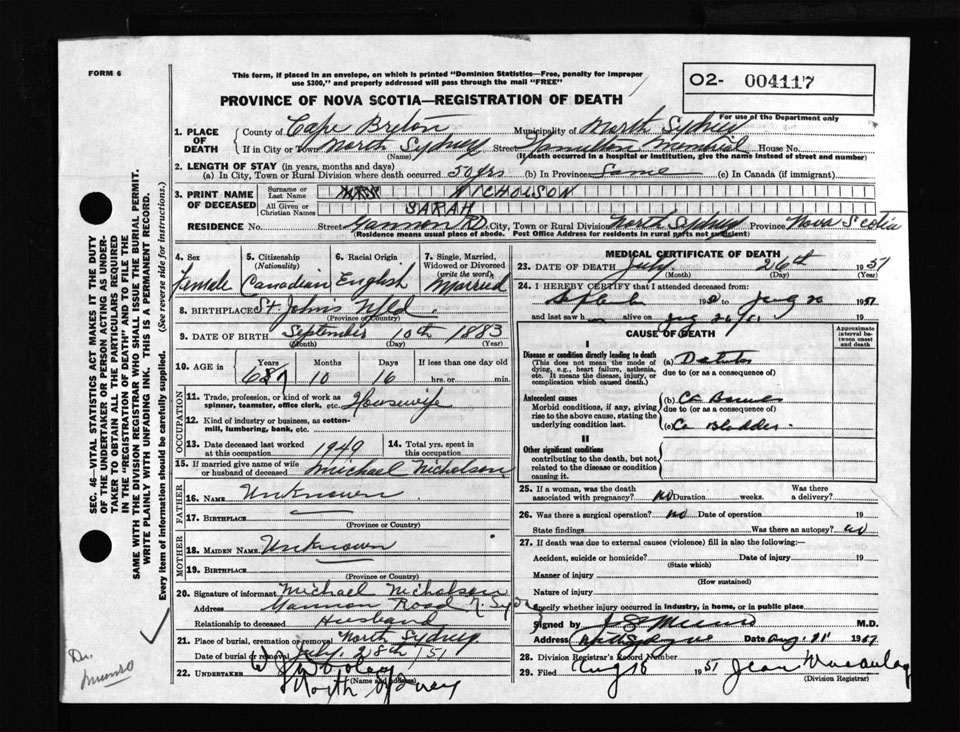 FORM 6
This form, if placed in an envelope, on which is printed "Dominion Statistics—Free, penalty for improper
use $300," and properly addressed will pass through the mail "FREE"
O2- 004117
For use of the Department only
PROVINCE OF NOVA SCOTIA—REGISTRATION OF DEATH
1. PLACE OF DEATH
County of Cape Breton Municipality of North Sydney
If in City or Town North Sydney Street Hamilton Memorial House No.
(Name) (If death occurred in a hospital or institution, give the name instead of street and number)
2. LENGTH OF STAY (in years, months and days)
(a) In City, Town or Rural Division where death occurred 50 yrs (b) In Province Same (c) In Canada (if immigrant)
3. PRINT NAME OF DECEASED
Surname or Last Name NICHOLSON
All Given or Christian Names SARAH
RESIDENCE No. Street Gannon Rd. City, Town or Rural Division North Sydney Province Nova Scotia
(Residence means usual place of abode. Post Office Address for residents in rural parts not sufficient)
4. Sex Female
5. Citizenship (Nationality) Canadian
6. Racial Origin English
7. Single, Married, Widowed or Divorced (write the word) Married
8. BIRTHPLACE St. Johns Nfld
(Province or Country)
9. DATE OF BIRTH September 10th 1883
(Month) (Day) (Year)
10. AGE in Years Months Days If less than one day old
67 10 16 hrs. or min.
OCCUPATION
11. Trade, profession, or kind of work as spinner, teamster, office clerk, etc. Housewife
12. Kind of industry or business, as cotton-mill, lumbering, bank, etc.
13. Date deceased last worked at this occupation 1949
14. Total yrs. spent in this occupation
15. If married give name of wife or husband of deceased Michael Nicholson
FATHER
16. NAME Unknown
17. BIRTHPLACE
(Province or Country)
MOTHER
18. MAIDEN NAME Unknown
19. BIRTHPLACE
(Province or Country)
20. Signature of informant Michael Nicholson
Address Gannon Road N. Syd
Relationship to deceased Husband
21. Place of burial, cremation or removal North Sydney
Date of burial or removal July 28th/51
22. UNDERTAKER
North Sydney
(Name and address)
MEDICAL CERTIFICATE OF DEATH
23. DATE OF DEATH July 26th 1951
(Month) (Day) (Year)
24. I HEREBY CERTIFY that I attended deceased from:
19 to 1951
and last saw h alive on 19
CAUSE OF DEATH
Approximate interval between onset and death
I
Disease or condition directly leading to death
(This does not mean the mode of dying, e.g., heart failure, asthenia, etc. It means the disease, injury, or complication which caused death.)
(a)
due to (or as a consequence of)
Antecedent causes
Morbid conditions, if any, giving rise to the above cause, stating the underlying condition last.
(b) Ca
due to (or as a consequence of)
(c) Ca Bladder
II
Other significant conditions
contributing to the death, but not related to the disease or condition causing it.
25. If a woman, was the death associated with pregnancy? no Duration weeks. Was there a delivery?
26. Was there a surgical operation? no Date of operation 19
State findings Was there an autopsy? no
27. If death was due to external causes (violence) fill in also the following:—
Accident, suicide or homicide? Date of injury 19
(State which)
Manner of injury
(How sustained)
Nature of injury
Specify whether injury occurred in industry, in home, or in public place
Signed by Munro M.D.
Address North Sydney Date Aug. 11 1951
28. Division Registrar's Record Number
29. Filed Aug 1951 Jean
(Division Registrar)
SEC. 46—VITAL STATISTICS ACT MAKES IT THE DUTY
OF THE UNDERTAKER OR PERSON ACTING AS UNDER-
TAKER TO OBTAIN ALL THE PARTICULARS REQUIRED
IN THE "REGISTRATION OF DEATH" AND TO FILE THE
SAME WITH THE DIVISION REGISTRAR WHO SHALL ISSUE THE BURIAL PERMIT.
WRITE PLAINLY WITH UNFADING INK. THIS IS A PERMANENT RECORD.
Every item of information should be carefully supplied. (See reverse side for instructions.)
Dr. Munro